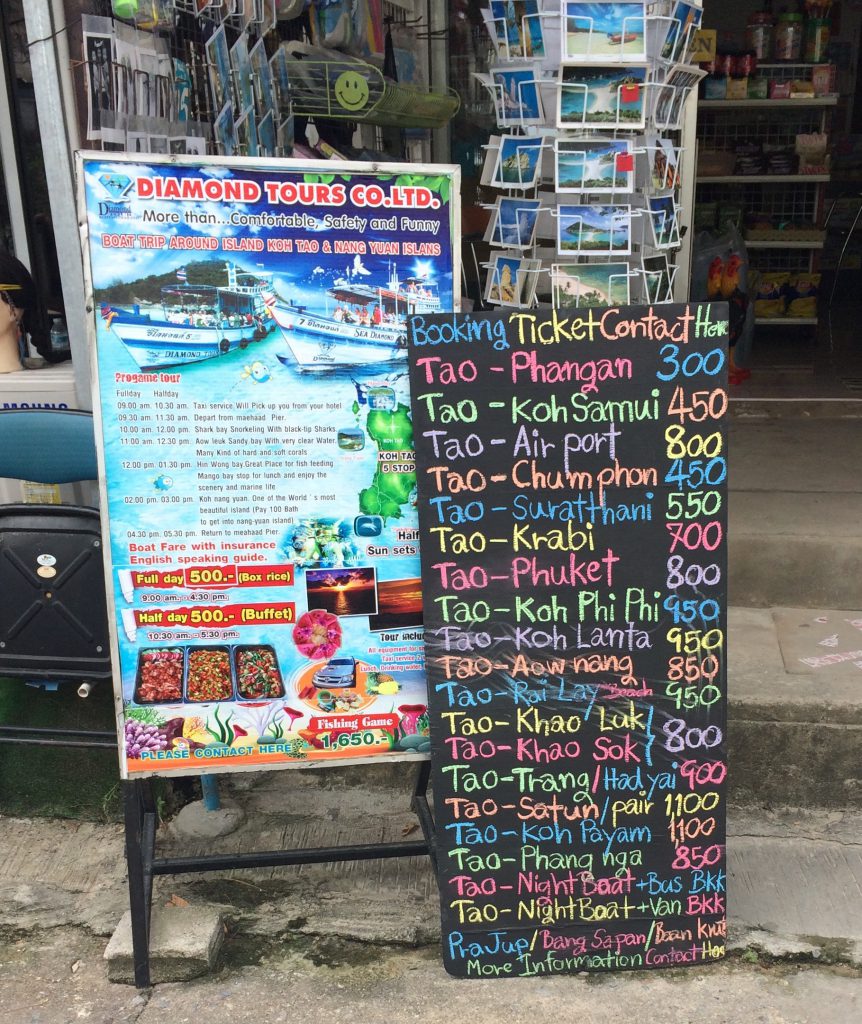 DIAMOND TOURS CO.LTD.
Diamond
More than...Comfortable, Safety and Funny
BOAT TRIP AROUND ISLAND KOH TAO & NANG YUAN ISLANS
DIAMOND
7
SEA DIAMOND
Progame tour
Fullday Halfday
09.00 am. 10.30 am. Taxi service Will Pick up you from your hotel
09.30 am. 11.30 am. Depart from maehaad Pier.
10.00 am. 12.00 pm. Shark bay Snorkeling With black-tip Sharks
11.00 am. 12.30 pm. Aow leuk Sandy bay With very clear Water.
Many Kind of hard and soft corals
12.00 pm. 01.30 pm. Hin Wong bay,Great Place for fish feeding
Mango bay stop for lunch and enjoy the
scenery and marine life
02.00 pm. 03.00 pm. Koh nang yuan. One of the World's most
beautiful island (Pay 100 Bath
to get into nang-yuan island)
04.30 pm. 05.30 pm. Return to meahaad Pier.
KOH TAO
KOH TAO
5 STOP
Boat Fare with insurance
English speaking guide.
Half
Sun sets
Full day 500.- (Box rice)
9.00 am. - 4:30 pm.
Half day 500.- (Buffet)
10.30 am. - 5:30 pm.
Tour includ
All equipment for
Taxi service
Lunch, Drinking water
Fishing Game
1,650.-
PLEASE CONTACT HERE
Booking Ticket Contact Here
Tao - Phangan 300
Tao - Koh Samui 450
Tao - Air port 800
Tao - Chumphon 450
Tao - Suratthani 550
Tao - Krabi 700
Tao - Phuket 800
Tao - Koh Phi Phi 950
Tao - Koh Lanta 950
Tao - Aow nang 850
Tao - Rai Lay Beach 950
Tao - Khao Luk
Tao - Khao Sok 800
Tao - Trang/Had yai 900
Tao - Satun/pair 1,100
Tao - Koh Payam 1,100
Tao - Phang nga 850
Tao - Night Boat + Bus Bkk
Tao - Night Boat + Van BKK
PraJup/Bang Sapan/Baan Krut
More Information Contact Here